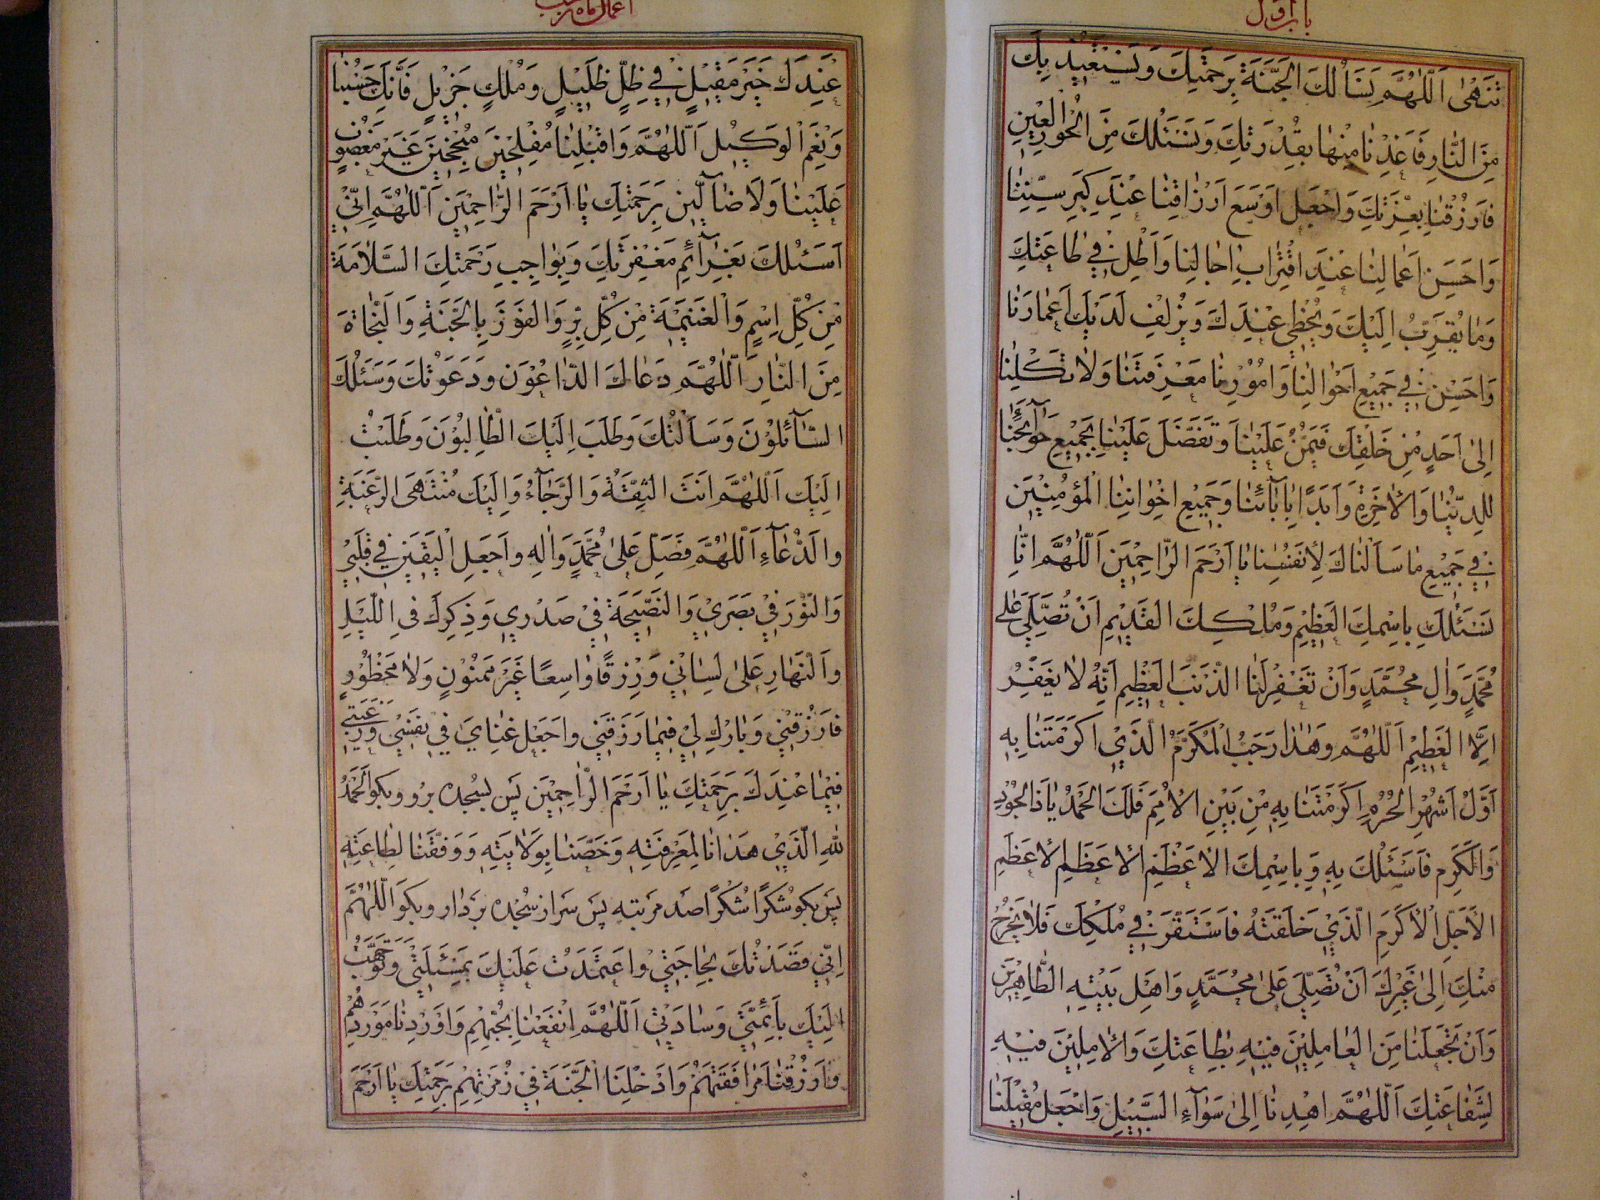 باب اول
تنهى اللهم نسألك الجنة برحمتك ونستعيذ بك
من النار فاعذنا منها بقدرتك ونسئلك من الحور العين
فارزقنا بعزتك واجعل اوسع ارزاقنا عند كبر سننا
واحسن اعمالنا عند اقتراب اجالنا واطل في طاعتك
وما يقرب اليك ويحظي عندك ويزلف لديك اعمارنا
واحسن في جميع احوالنا وامورنا معرفتنا ولا تكلنا
الى احد من خلقك فيمن علينا وتفضل علينا بجميع حوآئجنا
للدنيا والاخرة وابدا بابآئنا وجميع اخواننا المؤمنين
في جميع ما سألناك لانفسنا يا ارحم الراحمين اللهم انا
نسئلك باسمك العظيم وملكك القديم ان تصلي على
محمد وال محمد وان تغفر لنا الذنب العظيم انه لا يغفر
الا العظيم اللهم وهذا رجب المكرم الذي اكرمتنا به
اول اشهر الحرم اكرمتنا به من بين الامم فلك الحمد يا ذا الجود
والكرم فاسئلك به وباسمك الاعظم الاعظم الاعظم
الاجل الاكرم الذي خلقته فاستقر في ملكك فلا يخرج
منك الى غيرك ان تصلي على محمد واهل بيته الطاهرين
وان تجعلنا من العاملين فيه بطاعتك والاملين فيه
لشفاعتك اللهم اهدنا الى سوآء السبيل واجعل مقيلنا
اعمال ماه رجب
عندك خير مقيل في ظل ظليل وملك جزيل فانك حسبنا
ونعم الوكيل اللهم واقبلنا مفلحين منجحين غير مغضوب
علينا ولا ضآلين برحمتك يا ارحم الراحمين اللهم اني
اسئلك بعزآئم مغفرتك وبواجب رحمتك السلامة
من كل اسم والغنيمة من كل بر والفوز بالجنة والنجاة
من النار اللهم دعاك الداعون ودعوتك وسئلك
السآئلون وسألتك وطلب اليك الطالبون وطلبت
اليك اللهم انت الثقة والرجآء واليك منتهى الرغبة
والدعآء اللهم فصل على محمد واله واجعل اليقين في قلبي
والنور في بصري والنصيحة في صدري وذكرك في الليل
والنهار على لساني ورزقا واسعا غير ممنون ولا محظور
فارزقني وبارك لي فيما رزقتني واجعل غناي في نفسي ورغبتي
فيما عندك برحمتك يا ارحم الراحمين پس بسجده برو وبكو الحمد
لله الذي هدانا لمعرفته وخصنا بولايته ووفقنا لطاعته
پس بكو شكرا شكرا صد مرتبه پس سر از سجده بردار وبكو اللهم
اني قصدتك بحاجتي واعتمدت عليك بمسئلتي وتوجهت
اليك بأئمتي وسادتي اللهم انفعنا بحبهم واوردنا موردهم
وارزقنا مرافقتهم وادخلنا الجنة في زمرتهم برحمتك يا ارحم